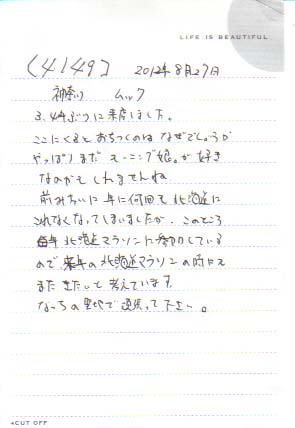 LIFE IS BEAUTIFUL
(4149) 2012年8月27日
神奈川 ムック
3,4年ぶりに来店しました。
ここにくるとおちつくのはなぜでしょうか
やっぱりまだモーニング娘。が好き
なのかもしれませんね
前みたいに年に何回も北海道に
これなくなってしまいましたが、このところ
毎年北海道マラソンに参加している
ので来年の北海道マラソンの時にも
またきたいって考えています。
なっちの聖地で頑張って下さい。
◂CUT OFF